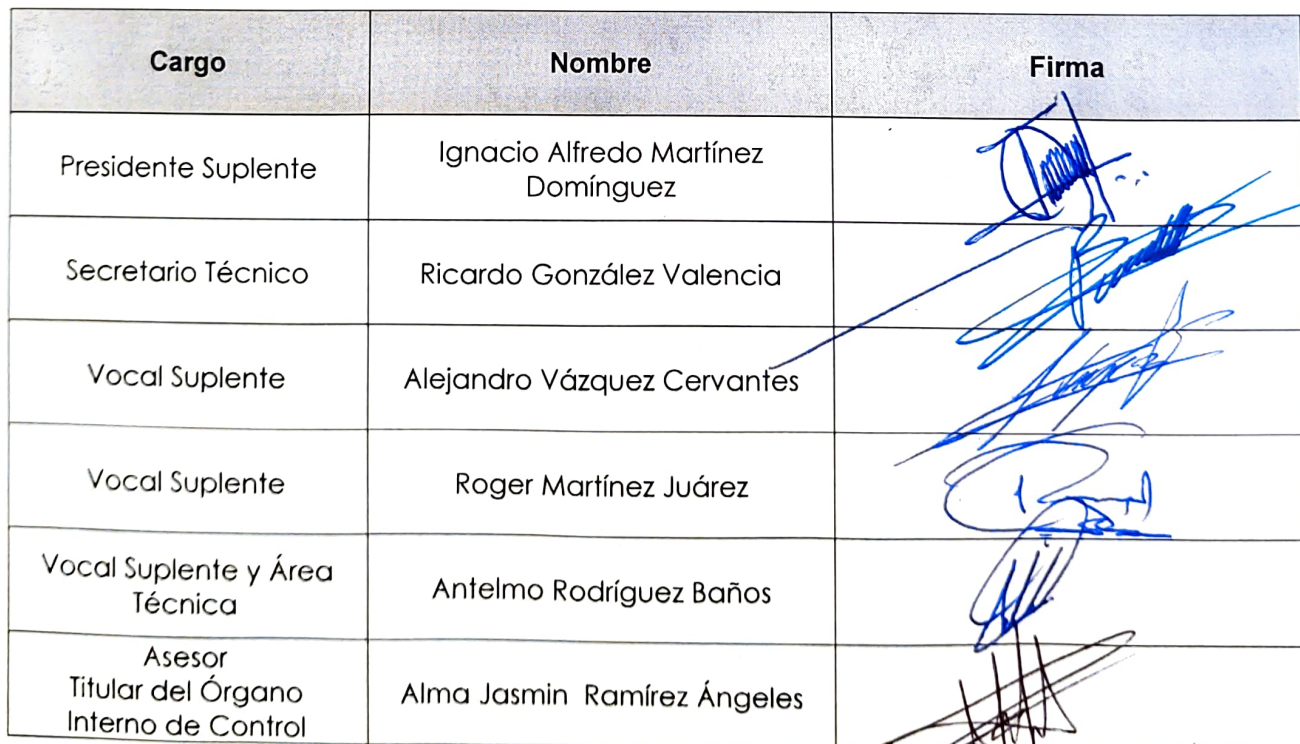 Cargo Nombre Firma
Presidente Suplente
Ignacio Alfredo Martínez
Domínguez
Secretario Técnico
Ricardo González Valencia
Vocal Suplente
Alejandro Vázquez Cervantes
Vocal Suplente
Roger Martínez Juárez
Vocal Suplente y Área
Técnica
Antelmo Rodríguez Baños
Asesor
Titular del Órgano
Interno de Control
Alma Jasmin Ramírez Ángeles